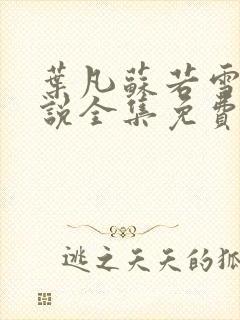 葉凡蘇若雪
說全集免費
逃之夭夭的狐